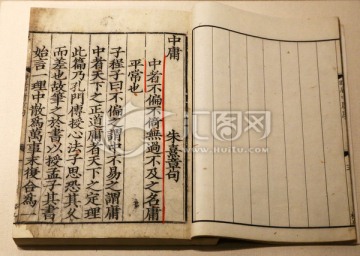 中庸
朱熹章句
中者不偏不倚無過不及之名庸
平常也
子程子曰不偏之謂中不易之謂庸
中者天下之正道庸者天下之定理
此篇乃孔門傳授心法子思恐其久
而差也故筆之於書以授孟子其書
始言一理中散爲萬事末復合爲一
汇图网
www.huitu.com